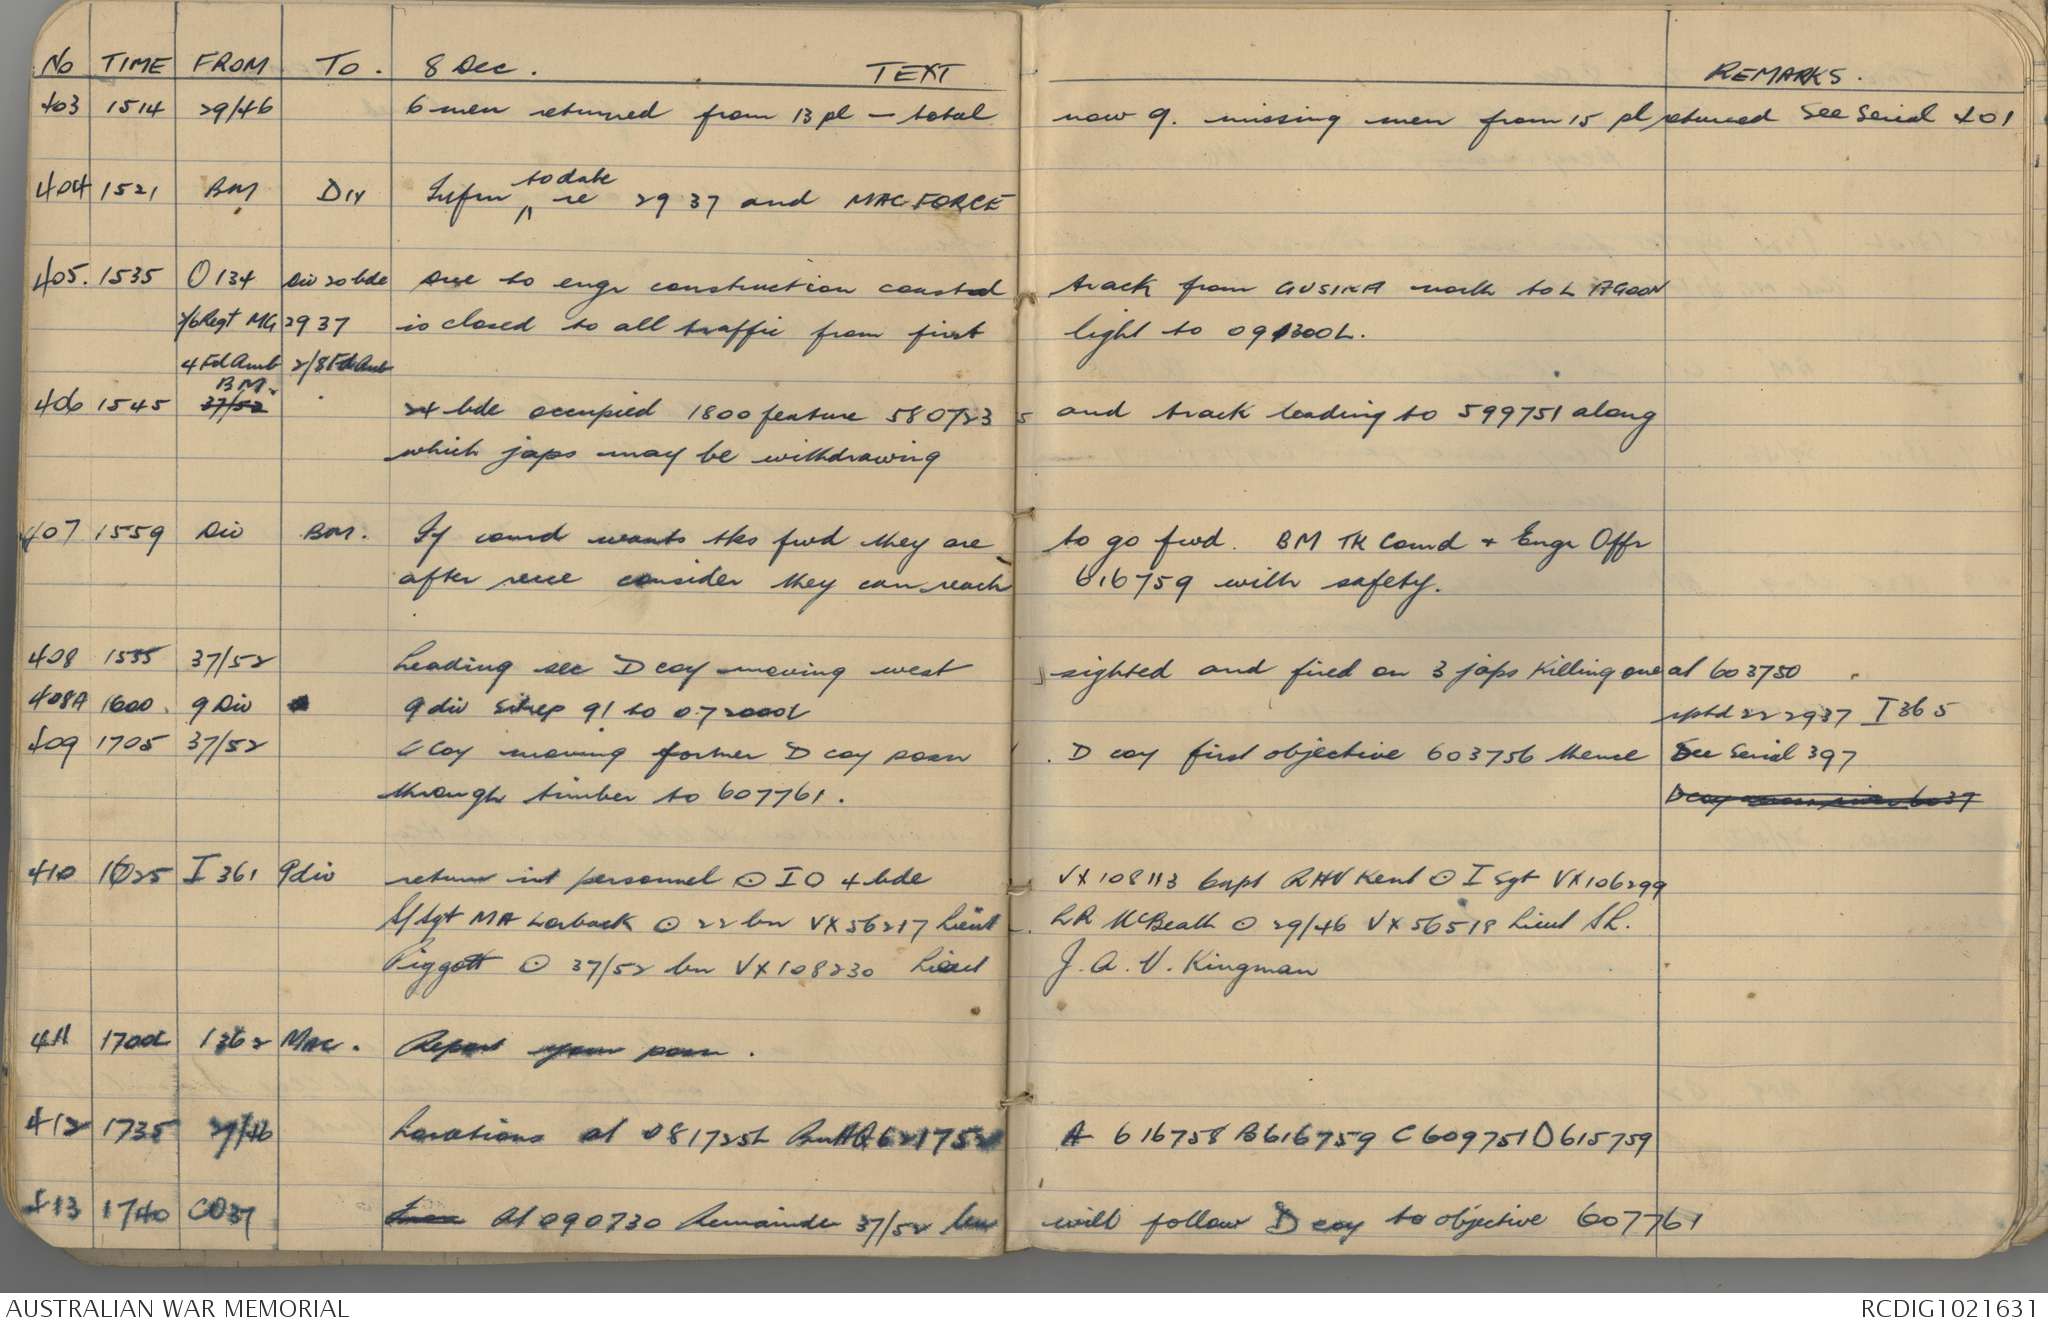 No TIME FROM To. 8 Dec. TEXT REMARKS.
403 1514 29/46 6 men returned from 13 pl - total now 9. missing men from 15 pl returned See Serial 401
404 1521 BM Div Infm ^to date re 29 37 and MACFORCE
405. 1535 O 134 Div 20 bde Due to engr construction coastal track from GUSIKA north to LAGOON
2/6 Regt MG 29 37 is closed to all traffic from first light to 091300L.
4 Fd Amb 2/8 Fd Amb
BM.
406 1545 37/52 24 bde occupied 1800 feature 580723 5 and track leading to 599751 along
which japs may be withdrawing
407 1559 Div BM. If comd wants tks fwd they are to go fwd. BM TK Comd + Engr Offr
after recce consider they can reach 616759 with safety.
408 1555 37/52 Leading sec D coy moving west sighted and fired on 3 japs killing one at 603750
408A 1600. 9 Div 9 div Sitrep 91 to 072000L rptd 22 2937 I 365
409 1705 37/52 C Coy moving former D coy posn. D coy first objective 603756 thence See Serial 397
through timber to 607761. D coy 6037
410 1625 I 361 9 div return int personnel ⊙ I O 4 bde VX108113 Capt RHV Kent ⊙ I Sgt VX106299
S/Sgt MA Lorback ⊙ 22 bn VX56217 Lieut LR McBeath ⊙ 29/46 VX56518 Lieut SL.
Piggott ⊙ 37/52 bn VX108230 Lieut J. A. V. Kingman
411 1700L I 362 Mac. Report your posn.
412 1735 29/46 Locations at 081725L Bn HQ 621752 A 616758 B 616759 C 609751 D 615759
413 1740 CO37 At 090730 Remainder 37/52 bn will follow D coy to objective 607761
AUSTRALIAN WAR MEMORIAL RCDIG1021631